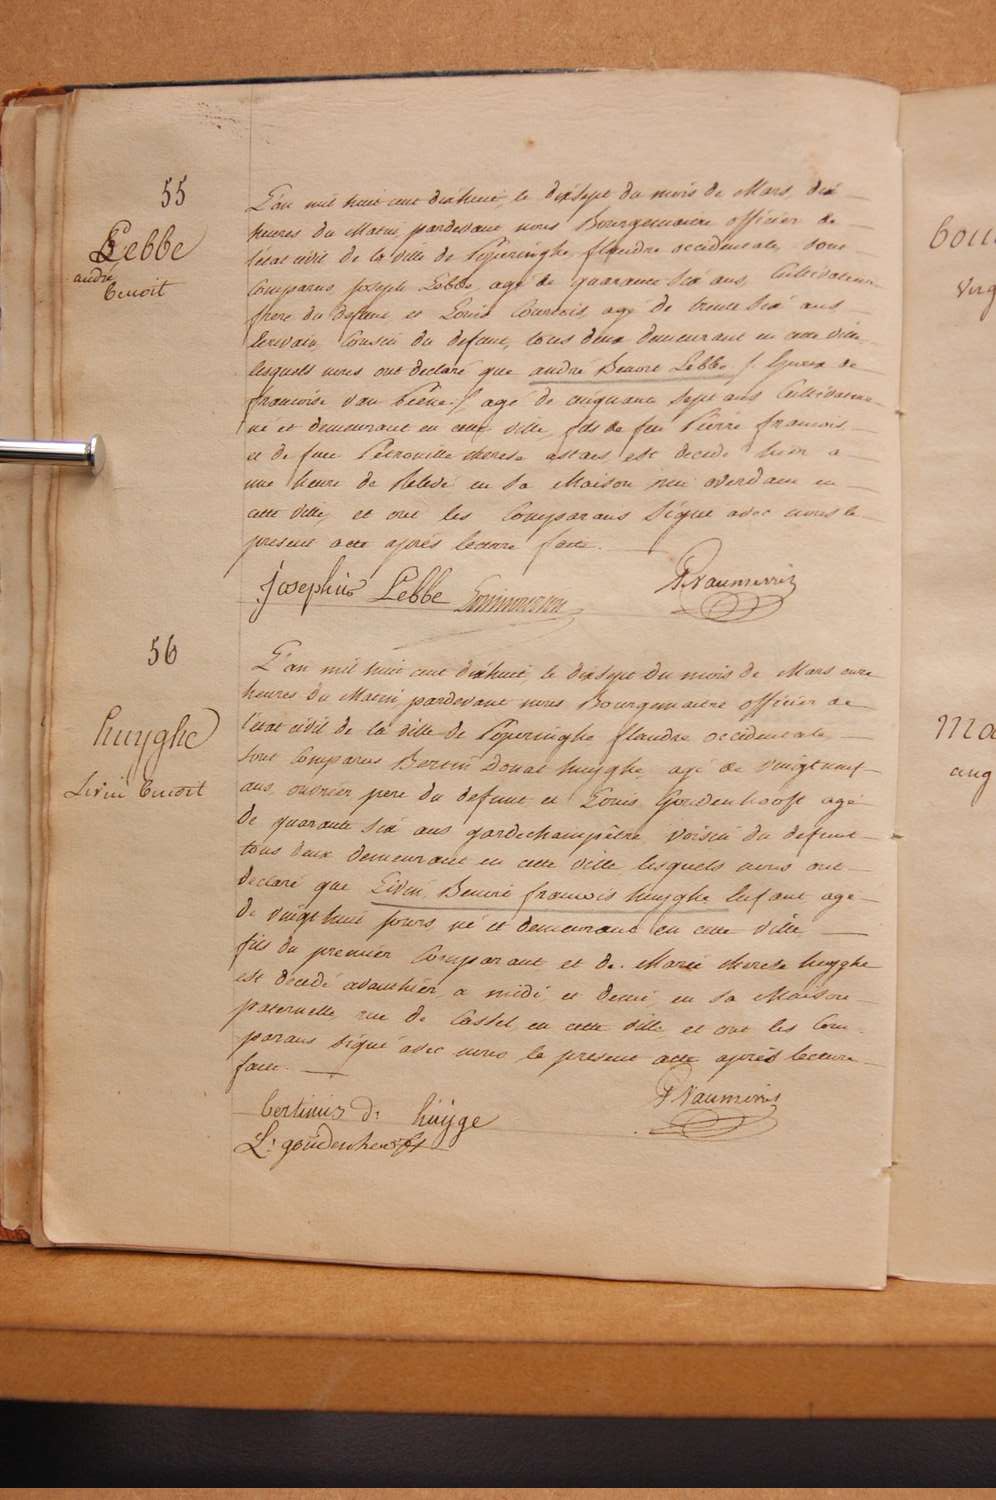 55
Lebbe
andré
benoit
L'an mil huit cent dixhuit, le dixsept du mois de Mars, dix
heures du Matin, pardevant nous Bourgemaitre officier de
l'etat civil de la ville de Poperinghe, flandre occidentale, sont
Comparus joseph Lebbe, agé de quarante six ans, Cultivateur
frere du defunt, et Louis Courtois, agé de trente six ans
Ecrivain, Cousin du defunt, tous deux demeurant en cette ville,
lesquels nous ont declaré que andré Benoit Lebbe / Epoux de
francoise van / agé de cinquante sept ans Cultivateur
né et demeurant en cette ville, fils de feu Pierre francois
et de feue Petronille therese est decedé hier a
une heure de Relevé en sa Maison rue en
cette ville, et ont les Comparans Signé avec nous le
present acte aprés lecture faite.
Josephus Lebbe
P Vanmerris
56
huyghe
Livin benoit
L'an mil huit cent dixhuit, le dixsept du mois de Mars onze
heures du Matin, pardevant nous Bourgemaitre officier de
l'etat civil de la ville de Poperinghe flandre occidentale,
sont Comparus Bertin Donat huyghe, agé de vingt neuf
ans, ouvrier pere du defunt et Louis Goudenhooft agé
de quarante six ans gardechampêtre, voisin du defunt
tous deux demeurant en cette ville, lesquels nous ont
declaré que Livin Benoit francois huyghe Enfant, agé
de vingt huit jours, né et demeurant en cette ville
fils du premier Comparant et de Marie therese huyghe
est decedé avanthier, a midi, et demi, en sa Maison
paternelle, rue de Cassel, en cette ville, et ont les Com
parans signé avec nous le present acte aprés lecture
faite.
bertinus d. huyge
P Vanmerris
L. goudenhooft
bou
virg
ma
aug